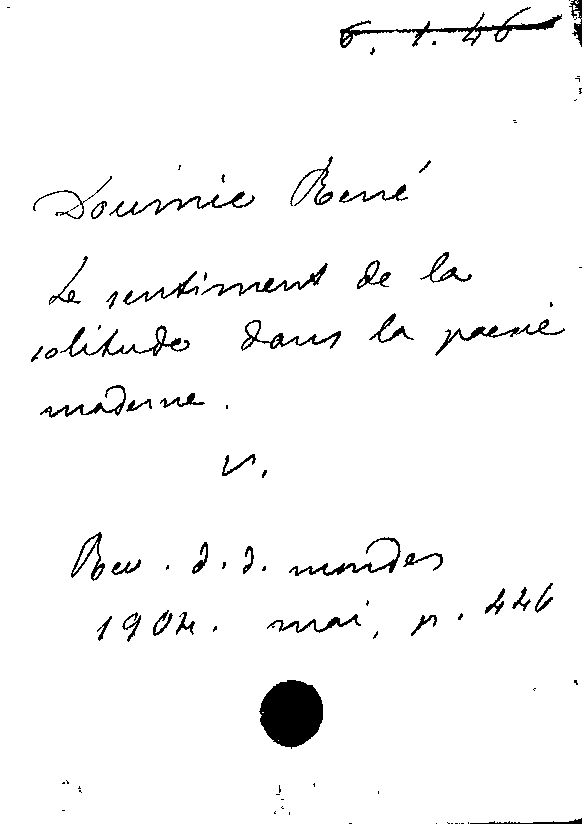 6. 1. 46
Doumic René
Le sentiment de la
solitude dans la poesie
moderne.
v.
Rev. d. d. mondes
1904. mai, p. 446